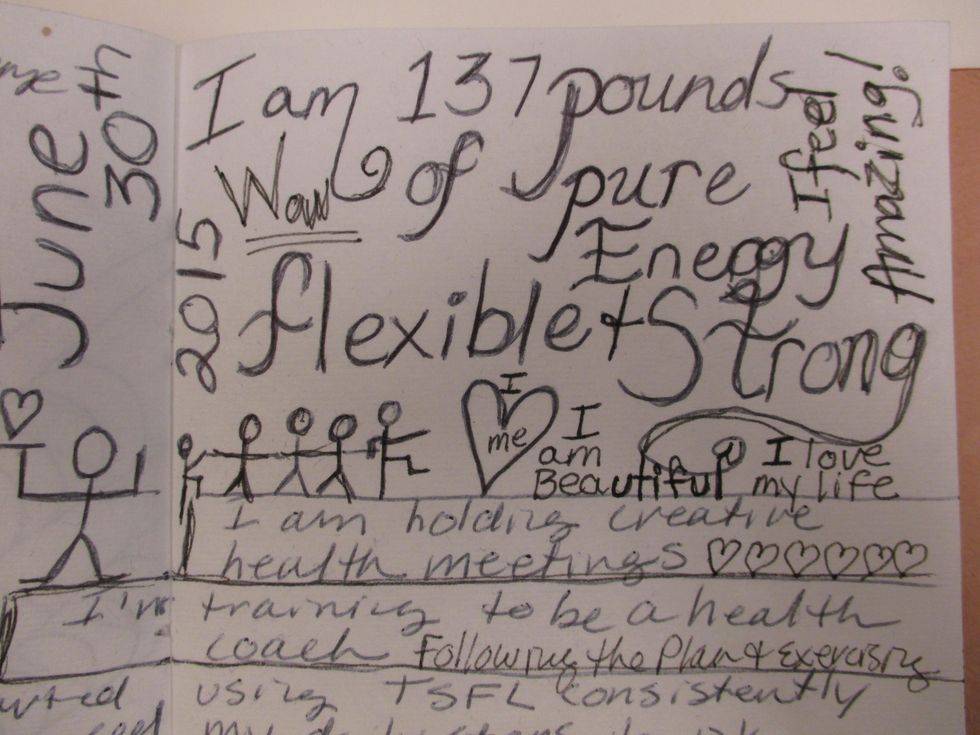 June
30th
2015
I am 137 pounds
Wow of pure
Energy
flexible + Strong
I feel
Amazing!
I
me
I
am
Beautiful
I love
my life
I am holding creative
health meetings
I'm training to be a health
coach Following the Plan & Exercising
using TSFL consistently
my